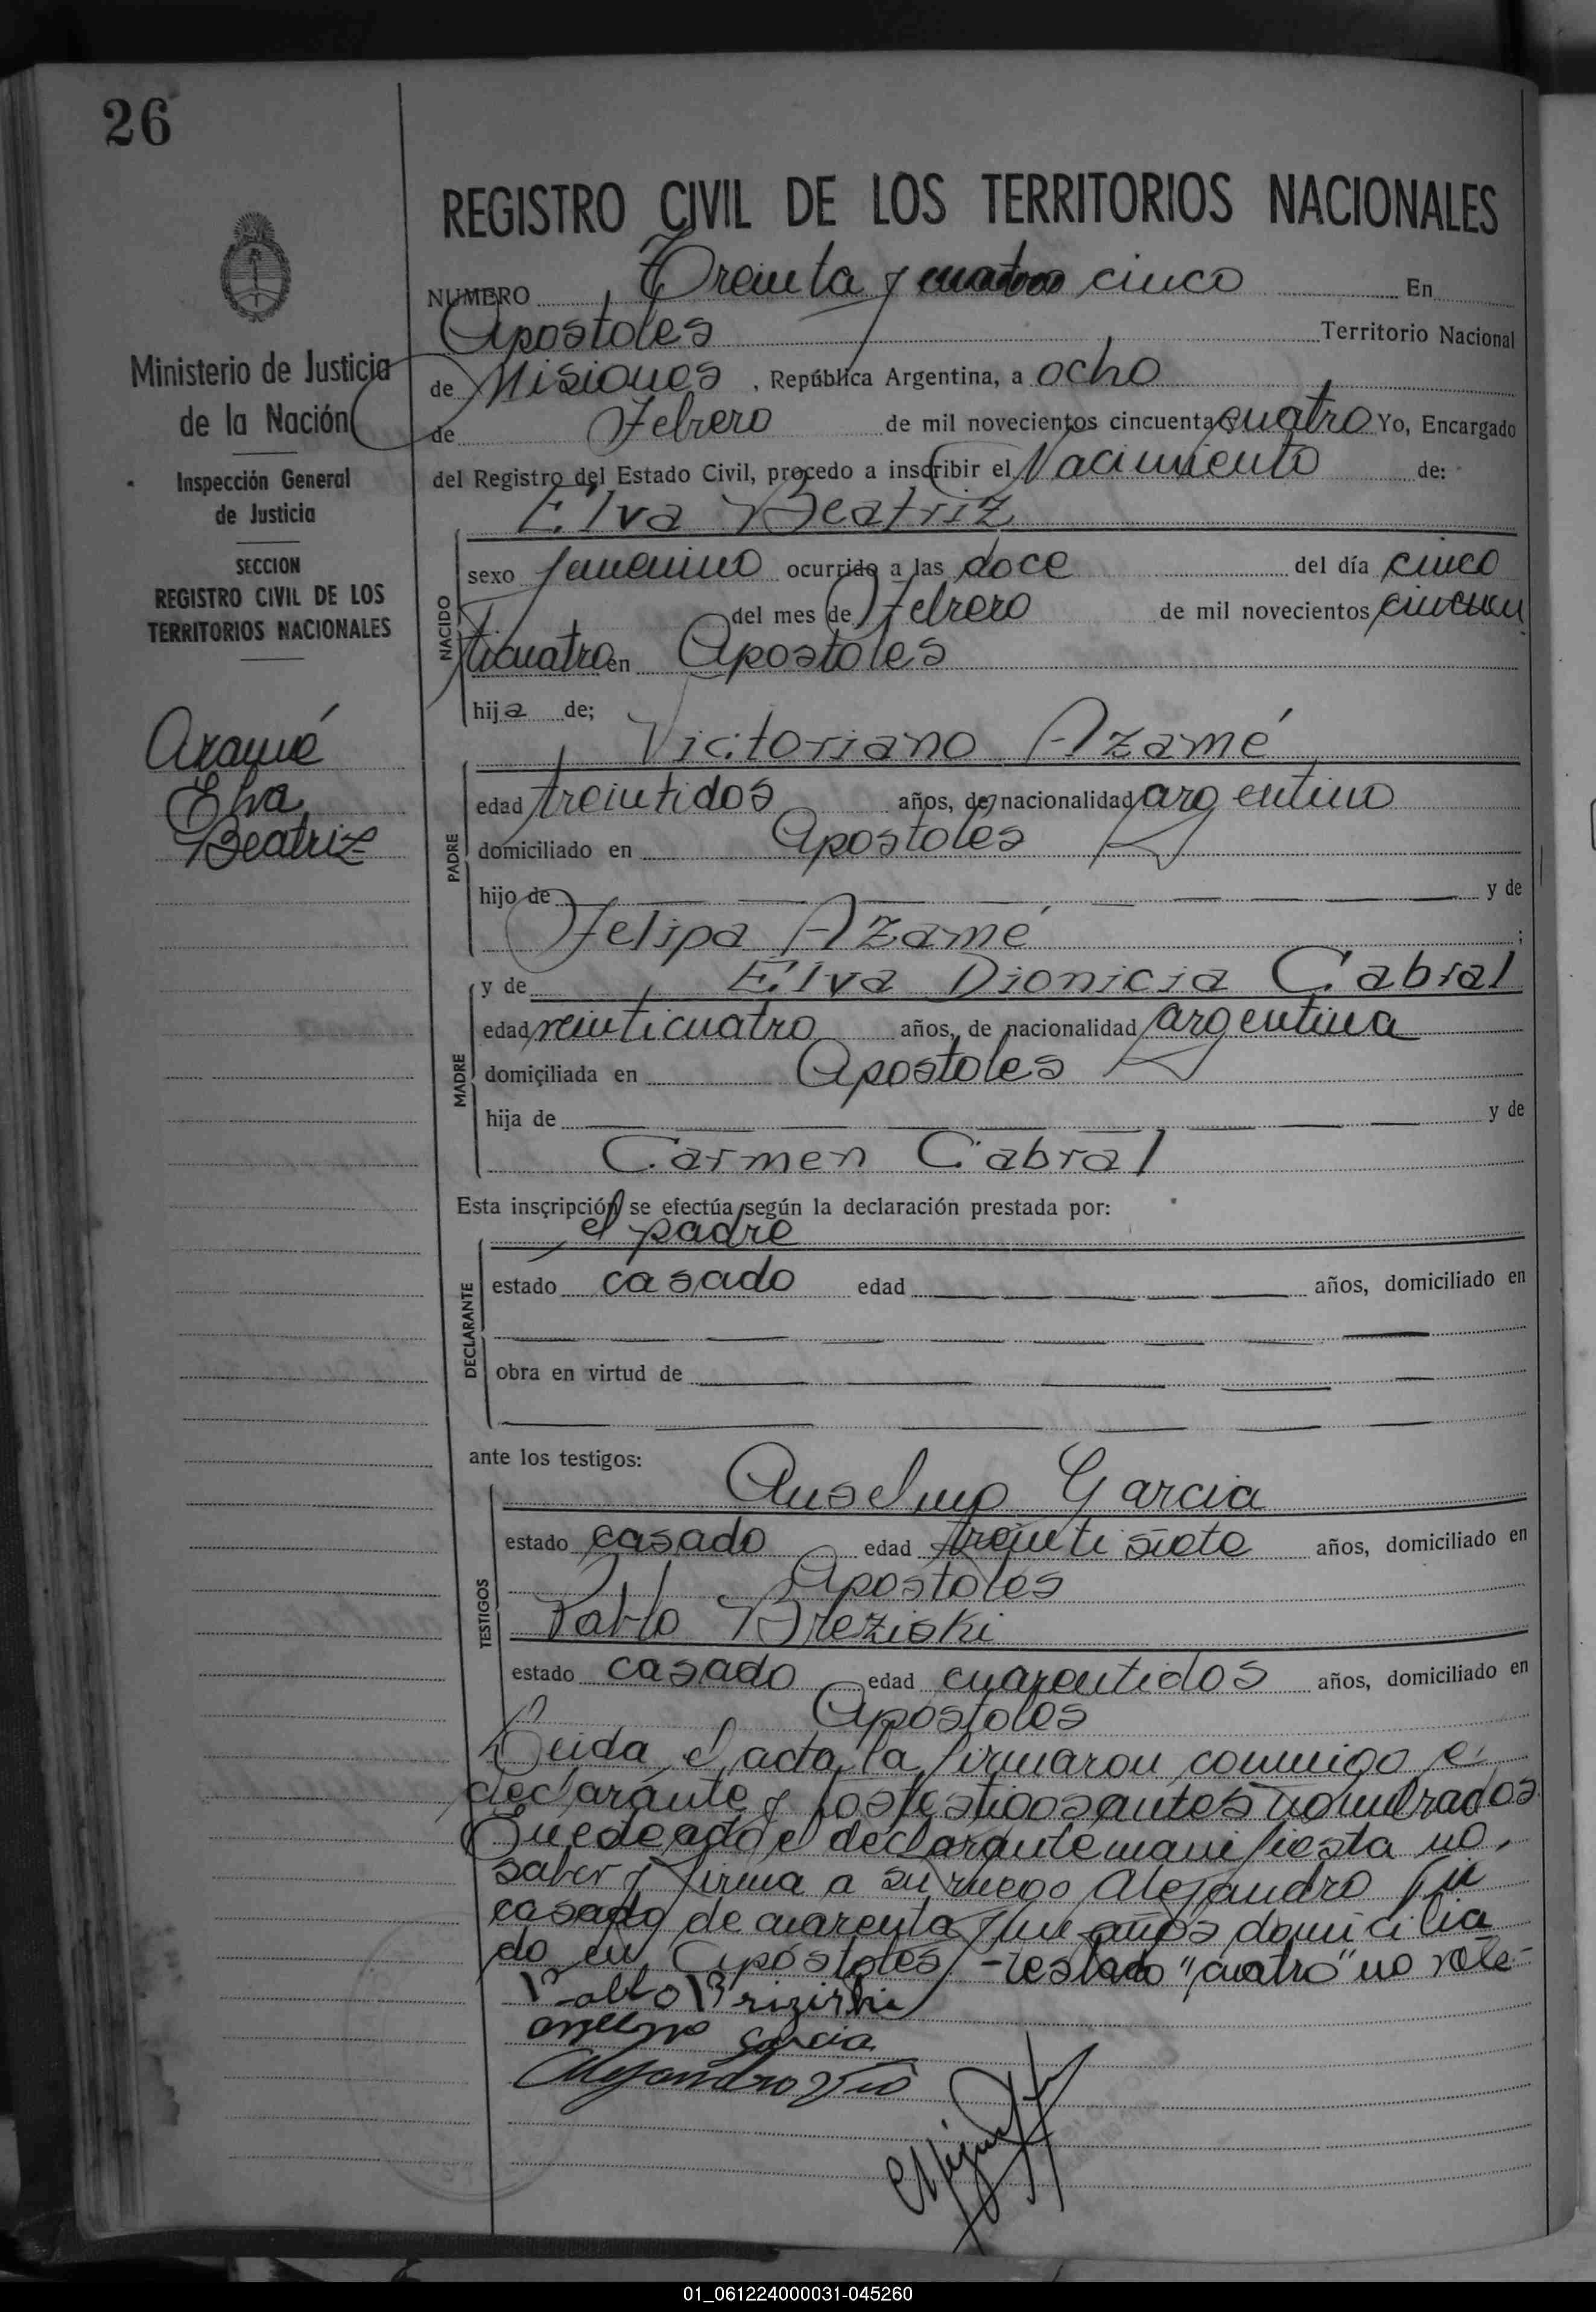 26
REGISTRO CIVIL DE LOS TERRITORIOS NACIONALES
NUMERO Treinta y cuatro cinco En
Apostoles Territorio Nacional
de Misiones, República Argentina, a ocho
de Febrero de mil novecientos cincuenta cuatro Yo, Encargado
del Registro del Estado Civil, procedo a inscribir el Nacimiento de:
Elva Beatriz
NACIDO
sexo femenino ocurrido a las doce del día cinco
del mes de Febrero de mil novecientos cincuen
ticuatro en Apostoles
hija de;
Victoriano Azamé
PADRE
edad treintidos años, de nacionalidad argentino
domiciliado en Apostoles
hijo de y de
Felipa Azamé ;
y de Elva Dionicia Cabral
MADRE
edad veinticuatro años, de nacionalidad argentina
domiciliada en Apostoles
hija de y de
Carmen Cabral
Esta inscripción se efectúa según la declaración prestada por:
el padre
DECLARANTE
estado casado edad años, domiciliado en
obra en virtud de
ante los testigos:
Anselmo Garcia
TESTIGOS
estado casado edad treinti siete años, domiciliado en
Apostoles
Pablo Breziski
estado casado edad cuarentidos años, domiciliado en
Apostoles
Leida el acta la firmaron conmigo el
declarante y los testigos antes nombrados
el declarante manifiesta no
saber y firma a su ruego Alejandro
casado de cuarenta y años domicilia
do en Apóstoles - testado "cuatro" no vale-
Pablo Brizirki
anselmo garcia
Alejandro
Ministerio de Justicia
de la Nación
Inspección General
de Justicia
SECCION
REGISTRO CIVIL DE LOS
TERRITORIOS NACIONALES
Azamé
Elva
Beatriz
01_061224000031-045260